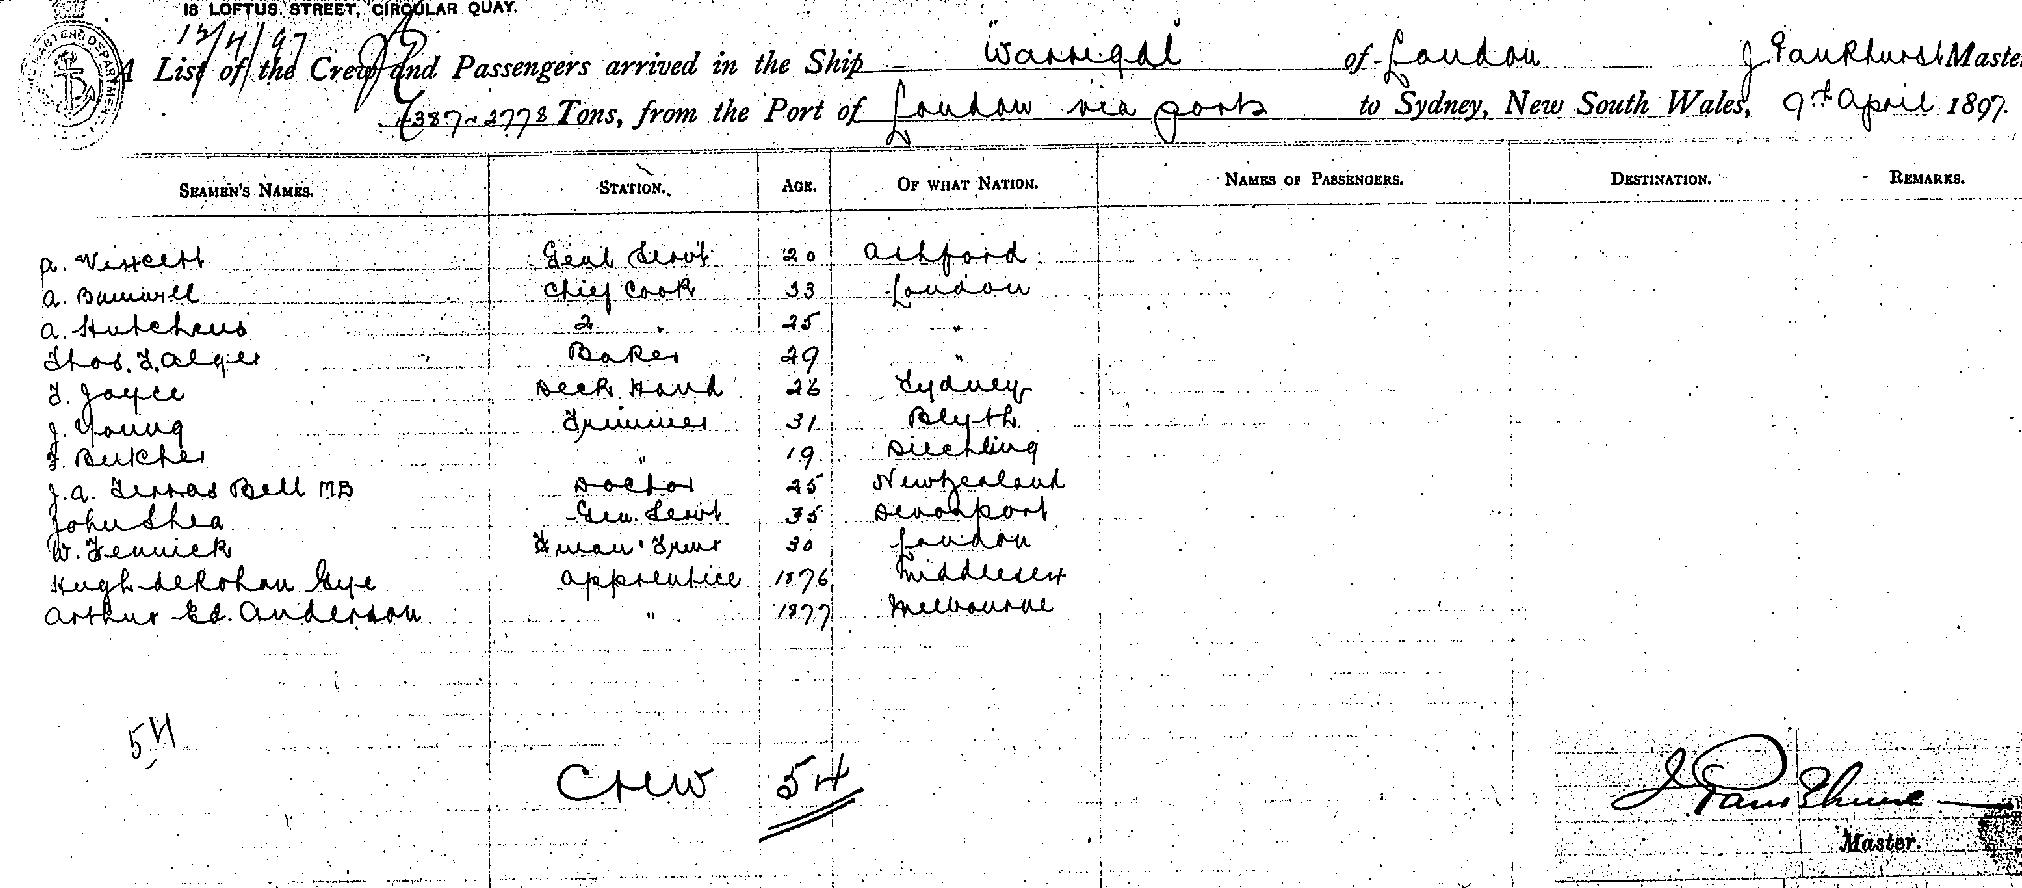 18 LOFTUS STREET, CIRCULAR QUAY.
12/4/97
A List of the Crew and Passengers arrived in the Ship "Warrigal" of London J Pankhurst Master
4387-2778 Tons, from the Port of London via ports to Sydney, New South Wales, 9th April 1897.
SEAMEN'S NAMES. STATION. AGE. OF WHAT NATION. NAMES OF PASSENGERS. DESTINATION. REMARKS.
A. Genl Servt 20 Ashford
A. Chief Cook 33 London
A. Hutchens 2 " 25 "
Thos. F. Alger Baker 29 "
F. Joyce Deck Hand 26 Sydney
J. Young Trimmer 31 Blyth
F. Butcher " 19 Ditchling
J. A. Ferras Bell MB Doctor 25 New Zealand
John Shea Gen. Servt 35 Devonport
W. Fennick Fman & Trmr 30 London
Hugh de Rohan Gye Apprentice 1876 Middlesex
Arthur Ed. Anderson " 1877 Melbourne
54
Crew 54
J. Pankhurst
Master.